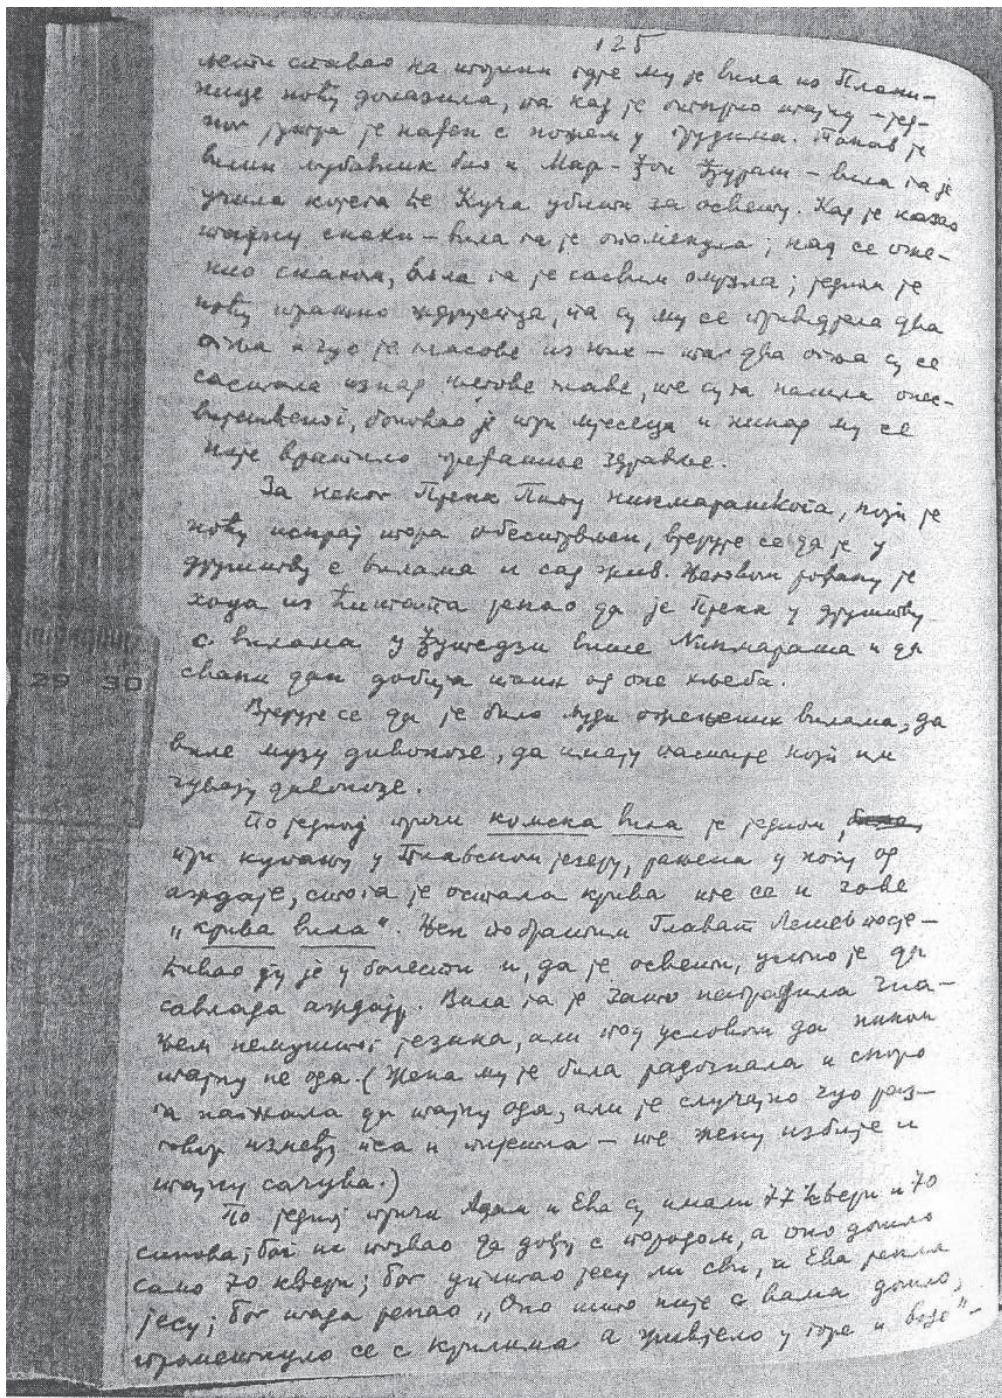 125
љети спавао на торини гдје му је вила из Плани-
нице ноћу долазила, па кад је открио тајну – јед-
ног јутра је нађен с ножем у грудима. Такав је
вилин љубавник био и Мар-Ђон Ђураш – вила га је
учила којега ће Куча убити за освету. Кад је казао
тајну снахи – вила га је опоменула; кад се оже-
нио снахом, вила га је сасвим омрзла; једном је
ноћу пратио ждријепца, па су му се привидјела два
огња и чуо је гласове из њих – та два огња су се
састала изнад његове главе, те су га нашла онес-
вијешћеног, боловао је три мјесеца и никад му се
није вратило пређашње здравље.
За неког Пренк Никмарашкога, који је
ноћу испрај тора обеспрвљен, вјерује се да је у
друштву с вилама и сад жив. Његовом рођаку је
хоџа из рекао да је Пренк у друштву
с вилама у више Никмараша и да
сваки дан добија таин од оне хљеба.
Вјерује се да је било људи ожењених вилама, да
виле музу дивокозе, да имају пастире који им
чувају дивокозе.
По једној причи комска вила је једном,
при купању у Плавском језеру, рањена у ногу од
аждаје, стога је остала крива те се и зове
„крива вила“. Њен побратим Глават Лешев посје-
ћивао ју је у болести и, да је освети, успио је да
савлада аждају. Вила га је зато наградила зна-
њем немуштог језика, али под условом да никоме
тајну не ода. (Жена му је била радознала и скоро
га нагнала да тајну ода, али је случајно чуо раз-
говор између пса и пијетла – те жену избије и
тајну сачува.)
По једној причи Адам и Ева су имали 77 кћери и 70
синова; бог их позвао да дођу с породом, а оно дошло
само 70 кћери; бог упитао јесу ли сви, а Ева рекла
јесу; бог тада рекао „Оно што није с вама дошло,
прометнуло се с крилима а живјело у горе и воде“ –
29 30